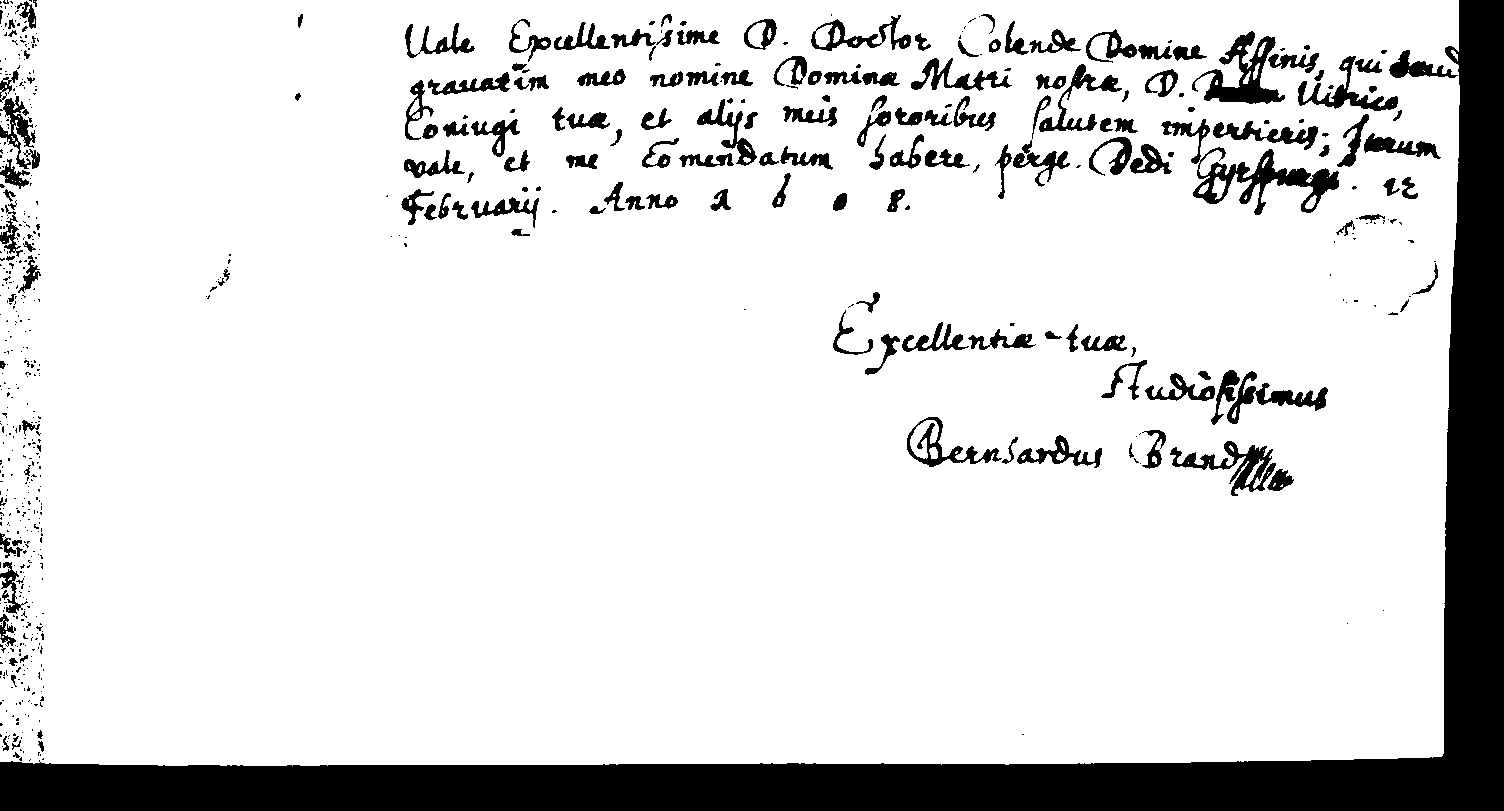 Vale Excellentissime D. Doctor Colende Domine Affinis, qui haud
gravatim meo nomine Dominæ Matri nostræ, D. Vitrico,
Coniugi tuæ, et alijs meis sororibus salutem impertieris; Iterum
vale, et me com̄endatum habere, perge. Dedi Gyrspurgi. 12
Februarij. Anno 1608.
Excellentiæ tuæ,
Studiosissimus
Bernhardus Brand